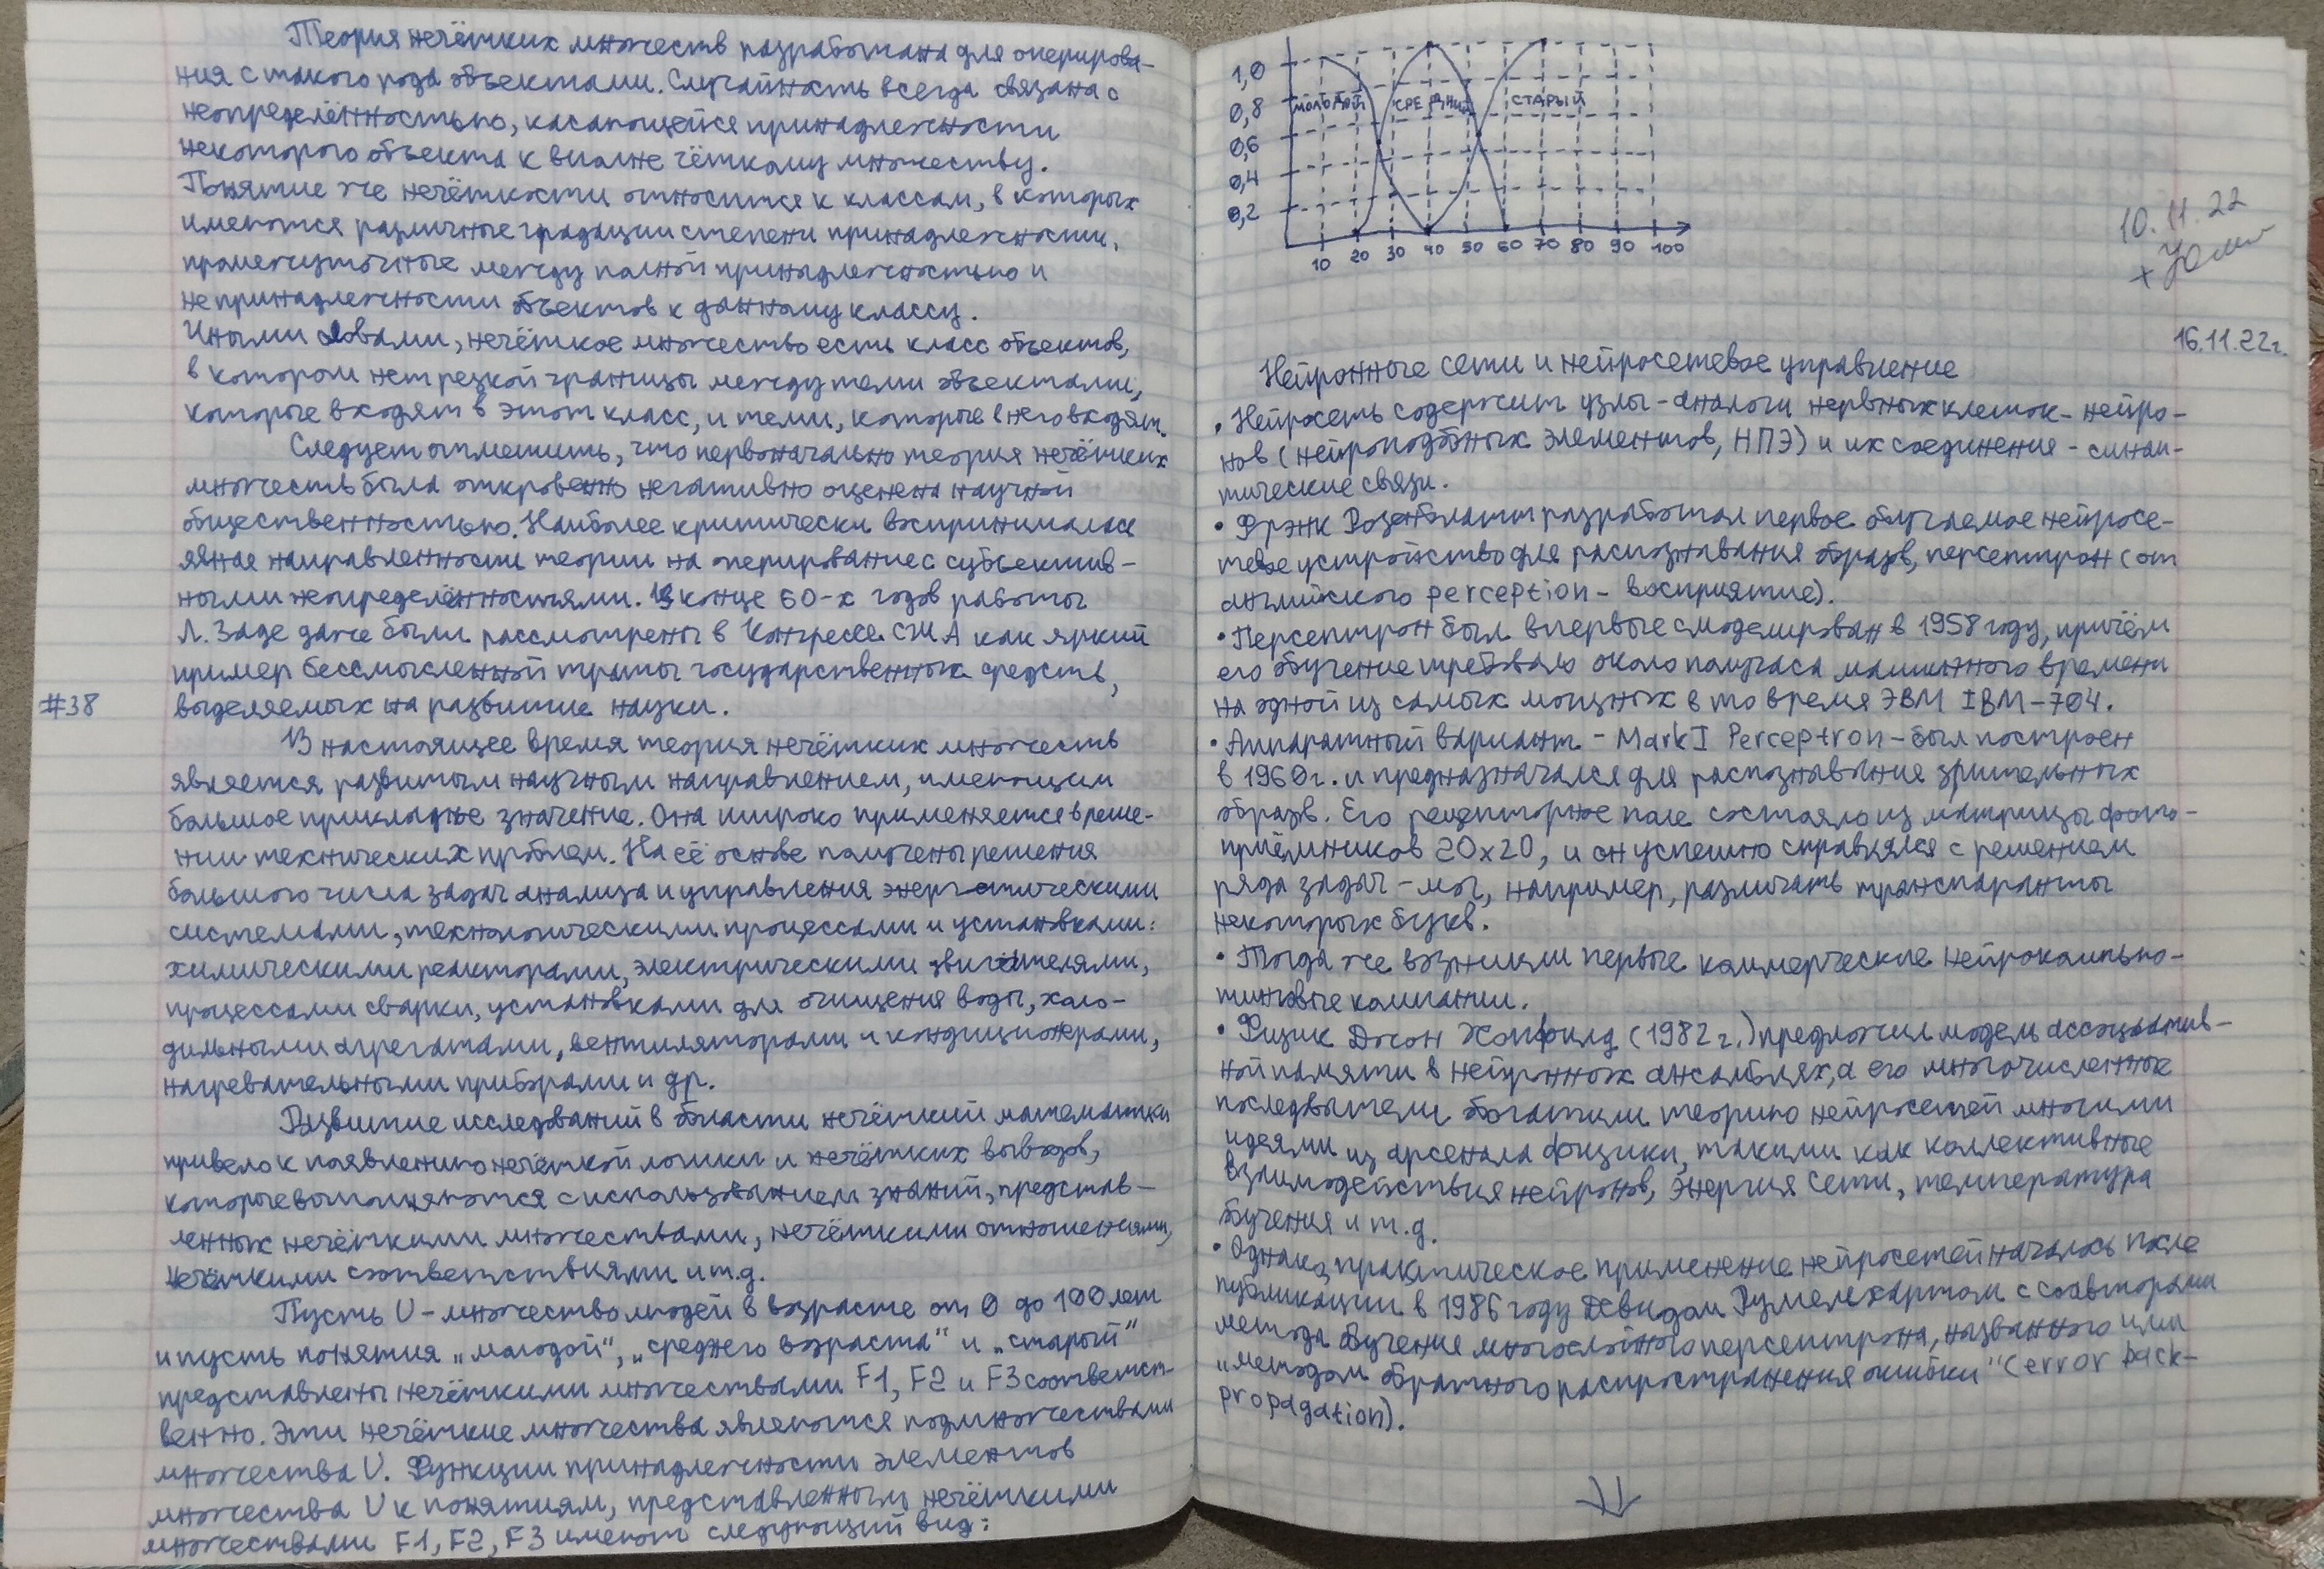 Теория нечётких множеств разработана для оперирова-
ния с такого рода объектами. Случайность всегда связана с
неопределённостью, касающейся принадлежности
некоторого объекта к вполне чёткому множеству.
Понятие же нечёткости относится к классам, в которых
имеются различные градации степени принадлежности,
промежуточные между полной принадлежностью и
непринадлежности объектов к данному классу.
Иными словами, нечёткое множество есть класс объектов,
в котором нет резкой границы между теми объектами,
которые входят в этот класс, и теми, которые в него входят.
Следует отметить, что первоначально теория нечётких
множеств была откровенно негативно оценена научной
общественностью. Наиболее критически воспринималась
явная направленность теории на оперирование с субъектив-
ными неопределённостями. В конце 60-х годов работы
Л. Заде даже были рассмотрены в Конгрессе США как яркий
пример бессмысленной траты государственных средств,
#38
выделяемых на развитие науки.
В настоящее время теория нечётких множеств
является развитым научным направлением, имеющим
большое прикладное значение. Она широко применяется в реше-
нии технических проблем. На её основе получены решения
большого числа задач анализа и управления энергетическими
системами, технологическими процессами и установками:
химическими реакторами, электрическими двигателями,
процессами сварки, установками для очищения воды, холо-
дильными агрегатами, вентиляторами и кондиционерами,
нагревательными приборами и др.
Развитие исследований в области нечёткий математики
привело к появлению нечёткой логики и нечётких выводов,
которые выполняются с использованием знаний, представ-
ленных нечёткими множествами, нечёткими отношениями,
нечёткими соответствиями и т.д.
Пусть U – множество людей в возрасте от 0 до 100 лет
и пусть понятия „молодой“, „среднего возраста“ и „старый“
представлены нечёткими множествами F1, F2 и F3 соответст-
венно. Эти нечёткие множества являются подмножествами
множества U. Функции принадлежности элементов
множества U к понятиям, представленным нечёткими
множествами F1, F2, F3 имеют следующий вид:
1,0
0,8
0,6
0,4
0,2
МОЛОДОЙ СРЕДНИЙ СТАРЫЙ
10 20 30 40 50 60 70 80 90 100
10.11.22
+
16.11.22г.
Нейронные сети и нейросетевое управление
• Нейросеть содержит узлы – аналоги нервных клеток – нейро-
нов (нейроподобных элементов, НПЭ) и их соединение – синап-
тические связи.
• Фрэнк Розенблатт разработал первое обучаемое нейросе-
тевое устройство для распознавания образов, персептрон (от
английского perception – восприятие).
• Персептрон был впервые смоделирован в 1958 году, причём
его обучение требовало около получаса машинного времени
на одной из самых мощных в то время ЭВМ IBM–704.
• Аппаратный вариант – Mark I Perceptron – был построен
в 1960г. и предназначался для распознавания зрительных
образов. Его рецепторное поле состояло из матрицы фото-
приёмников 20x20, и он успешно справлялся с решением
ряда задач – мог, например, различать транспаранты
некоторых букв.
• Тогда же возникли первые коммерческие нейрокомпью-
тинговые компании.
• Физик Джон Хопфилд (1982 г.) предложил модель ассоциатив-
ной памяти в нейронных ансамблях, а его многочисленные
последователи обогатили теорию нейросетей многими
идеями из арсенала физики, такими как коллективные
взаимодействия нейронов, энергия сети, температура
обучения и т.д.
• Однако, практическое применение нейросетей началось после
публикации в 1986 году Дэвидом Румельхартом с соавторами
метода обучение многослойного персептрона, названного ими
„методом обратного распространения ошибки“ (error back-
propagation).